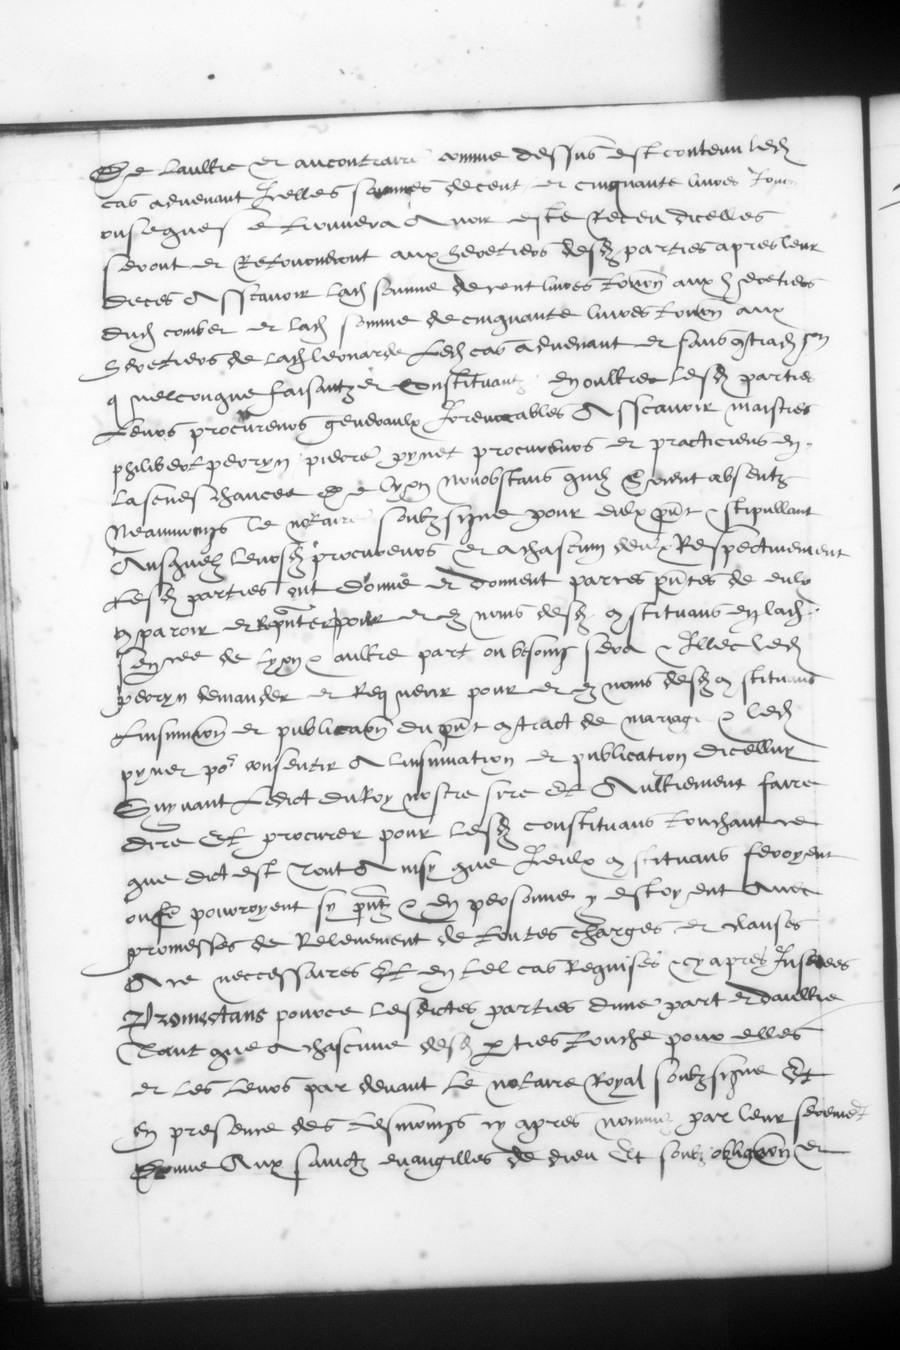 De laultre et aucontraire comme dessus est contenu led
cas advenant Icelles sommes de cent et cinquante livres
ou se trouvera Avoir este Receu dicelles
seront et Retourneront aux heretiers desd parties apres leur
deces Asscavoir lad somme de cent livres tourn aux heretiers
dud comber et lad somme de cinquante livres tourn aux
heretiers de lad leonarde led cas advenant et sans
quelconque faisantz et Constituantz en oultre lesd parties
leurs procureurs generaulx Irrevocables Asscavoir maistres
philibert peoryn pierre pynet procureurs et practiciens en
la seneschaucee de lyon nonobstans quilz soient absentz
Neaumoings le notaire soubzsigne pour eulx pnt stipullant
Ausquelz leursd procureurs et a chascun deulx Respectivement
lesd parties ont donne et donnent parces pntes de eulx
comparoir et Repnter pour et es noms desd constituans en lad
senee de lyon aultre part ou besoing sera Illec led
peoryn demander et Requerir pour et es noms desd constituans
linsinuaon et publicaon du pnt contract de mariage led
pynet po consentir A linsinuation et publication dicelluy
Suyvant ledict du Roy nostre sire Et Aultrement faire
dire Et procurer pour lesd constituans touchant ce
que dict est tout Ainsy que Iceulx constituans feroyent
ou pourroyent sy pntz en personne y estoyent Avec
promesses de Relevement de toutes charges et clauses
A ce neccessaires Et en tel cas Requises cy apres Inserees
Promectans pource lesdictes parties dune part et daultre
Tant que A chascune desd pties touche pour elles
et les leurs par devant le notaire Royal soubzsigne Et
en presence des tesmoings cy apres nommez par leur serement
donne Aux sainctz evangilles de dieu Et soubz obligaon et